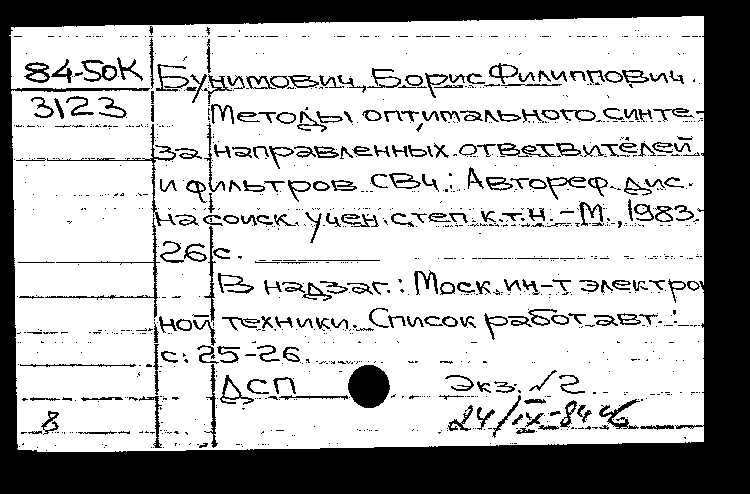 84-50К Бунимович, Борис Филиппович.
3123 Методы оптимального синте-
за направленных ответвителей
и фильтров СВЧ: Автореф. дис.
на соиск. учен. степ. к.т.н. - М., 1983.-
26 с.
В надзаг.: Моск. ин-т электрон
ной техники. Список работ авт.:
с. 25-26.
ДСП Экз. √2
8 24/IX-84